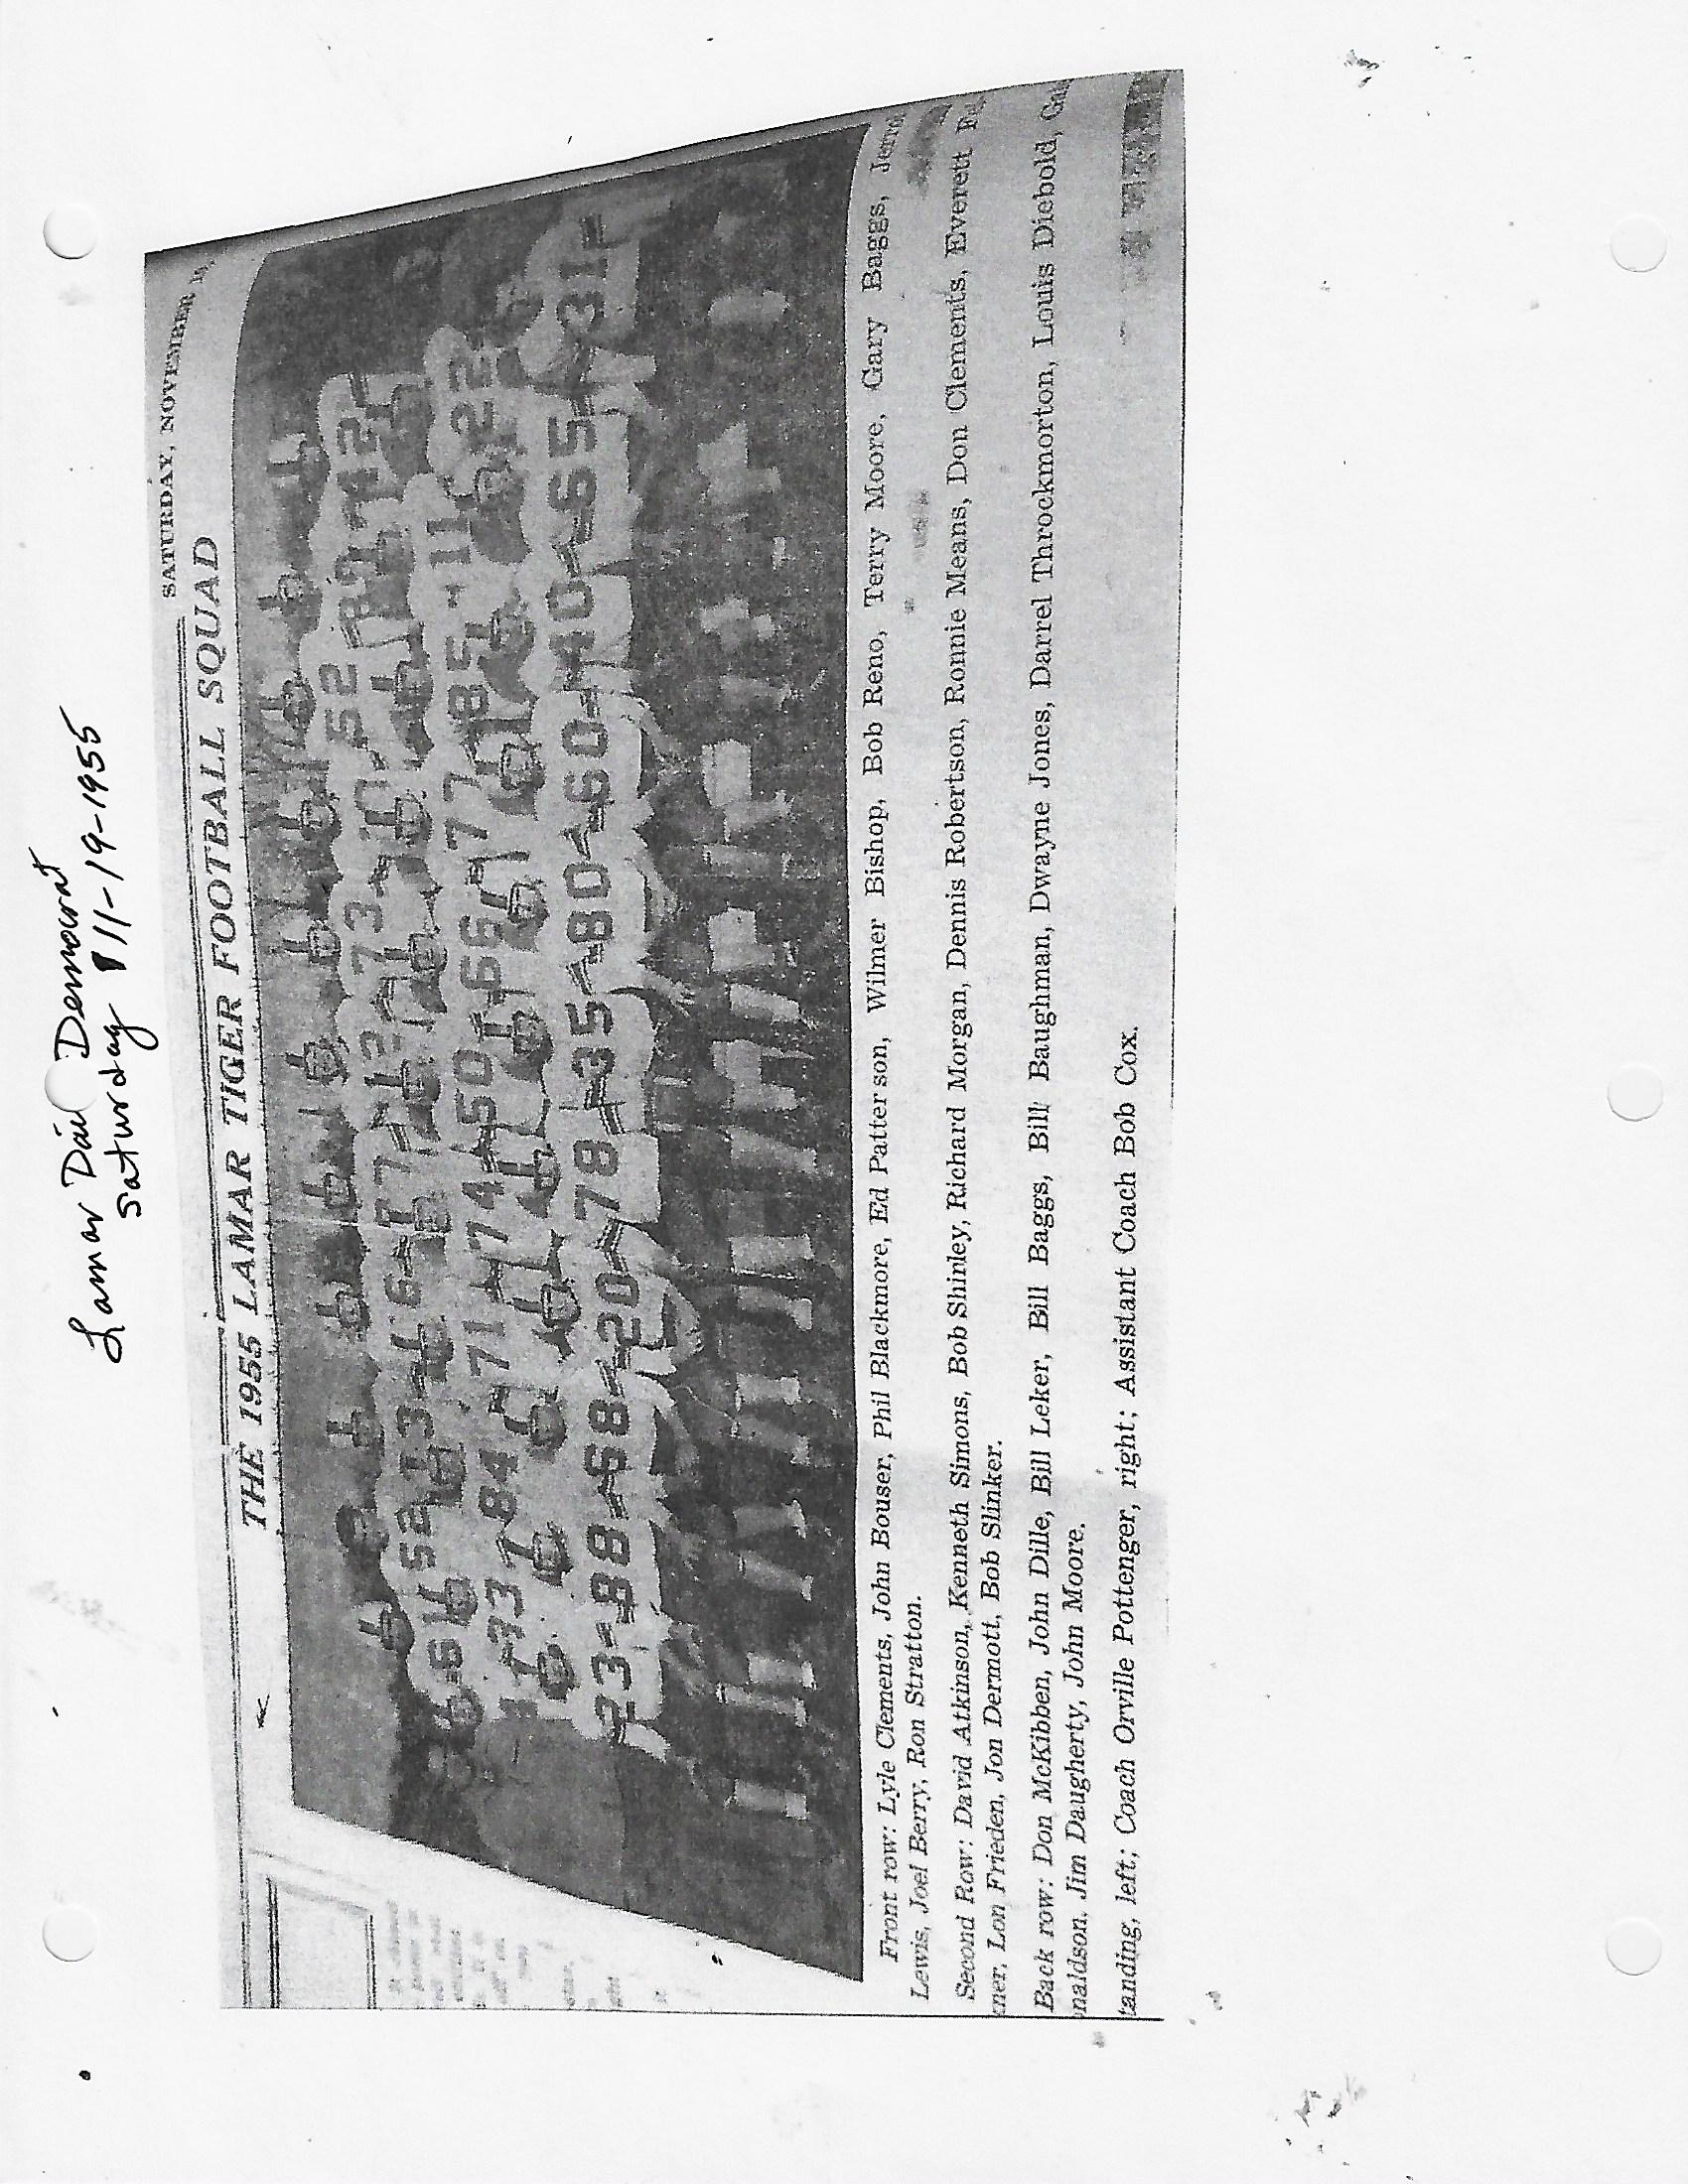 Lamar Dail Democrat
Saturday 11-19-1955
SATURDAY, NOVEMBER 19,
THE 1955 LAMAR TIGER FOOTBALL SQUAD
52 12
66 52 13 16 77 12 73 10
33 84 71 74 50 66 77 85 11 22
23 88 68 20 78 35 80 60 40 65 31
Front row: Lyle Clements, John Bouser, Phil Blackmore, Ed Patterson, Wilner Bishop, Bob Reno, Terry Moore, Gary Baggs,
Lewis, Joel Berry, Ron Stratton.
Second Row: David Atkinson, Kenneth Simons, Bob Shirley, Richard Morgan, Dennis Robertson, Ronnie Means, Don Clements, Everett
ner, Lon Frieden, Jon Dermott, Bob Slinker.
Back row: Don McKibben, John Dille, Bill Leker, Bill Baggs, Bill Baughman, Dwayne Jones, Darrel Throckmorton, Louis Diebold,
naldson, Jim Daugherty, John Moore.
tanding, left; Coach Orville Pottenger, right; Assistant Coach Bob Cox.